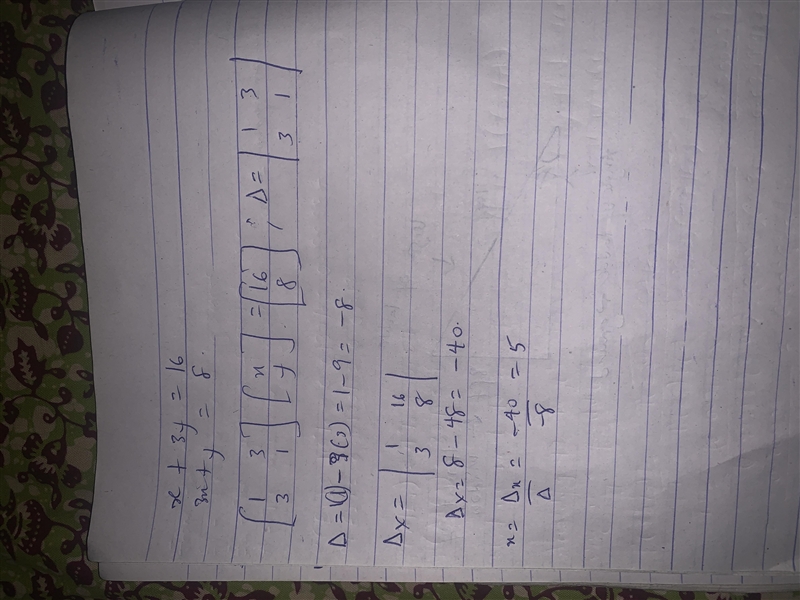 x + 3y = 16
3x + y = 8.
[1 3 3 1] [x y] = [16 8] ; Δ = |1 3 3 1|
Δ = 1(1) - 3(3) = 1 - 9 = -8.
Δx = |1 16 3 8|
Δx = 8 - 48 = -40.
x = Δx/Δ = -40/-8 = 5